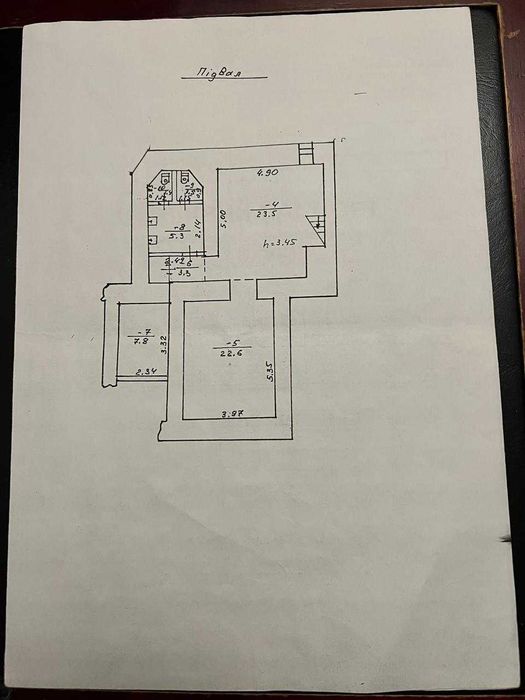 Підвал
4.90
-4
23.5
5.00
h=3.45
-8
5.3
2.14
3.3
-7
7.8
3.32
2.34
-5
22.6
5.35
3.97